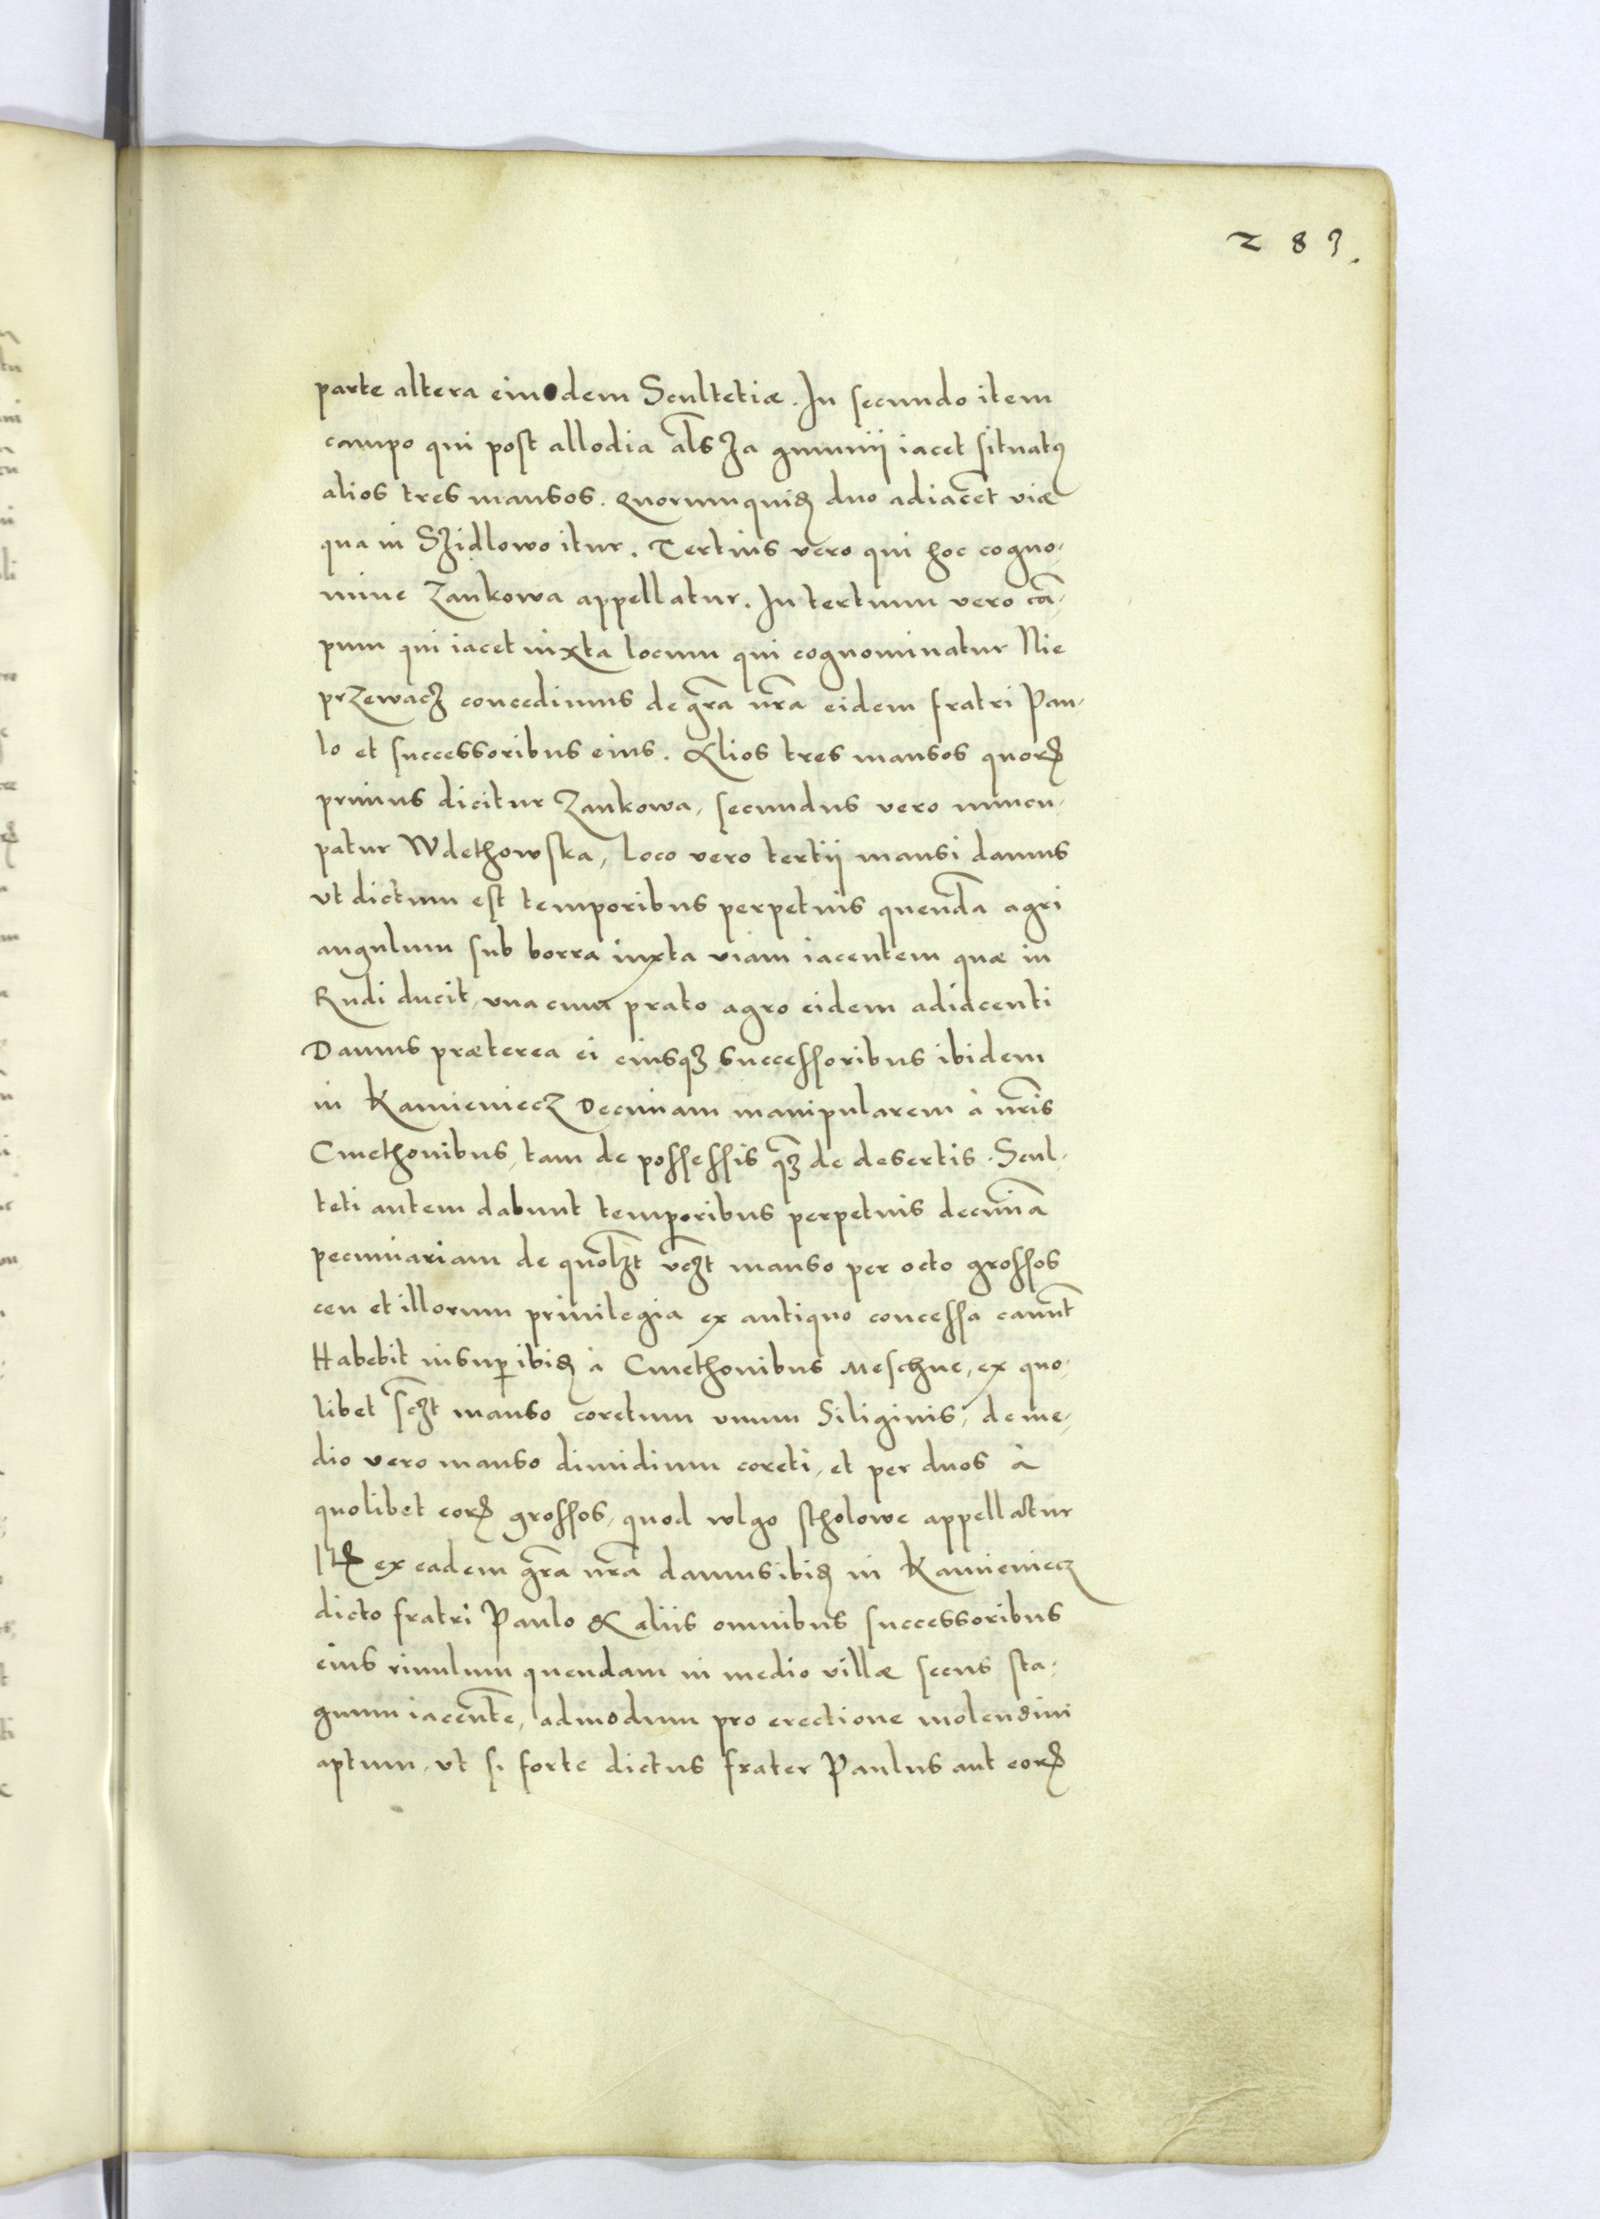 283.
parte altera eiusdem Scultetiæ. In secundo item
campo qui post allodia al̄s Za gumnij iacet situatꝰ
alios tres mansos. Quorumquidẽ duo adiacẽt viæ
qua in Sʒidlowo itur. Tertius vero qui hoc cogno-
mine Zankowa appellatur. In tertium vero cã-
pum qui iacet iuxta locum qui cognominatur Nie
przewacʒ concedimus de gr̃a nr̃a eidem fratri Pau-
lo et successoribus eius. Alios tres mansos quorꝝ
primus dicitur Zankowa, secundus vero nuncu-
patur Wdethowska, loco vero tertij mansi damus
vt dictum est temporibus perpetuis quendã agri
angulum sub borra iuxta viam iacentem quæ in
Rudi ducit, vna cum prato agro eidem adiacenti
Damus præterea ei eiusqʒ successoribus ibidem
in Kamieniecz Decimam manipularem à nr̃is
Cmethonibus, tam de possessis q̃ʒ de desertis. Scul-
teti autem dabunt temporibus perpetuis decimã
pecuniariam de quolʒt vcʒt manso per octo grossos
ceu et illorum priuilegia ex antiquo concessa cauũt
Habebit insuꝑ ibidẽ à Cmethonibus Meschne, ex quo-
libet scʒt manso coretum vnum Siliginis, de me-
dio vero manso dimidium coreti, et per duos à
quolibet eorꝝ grossos, quod wlgo stholowe appellatur
Itẽ ex eadem gr̃a nr̃a damus ibidẽ in Kamieniecz
dicto fratri Paulo & aliis omnibus successoribus
eius riuulum quendam in medio villæ secus sta-
gnum iacentẽ, admodum pro erectione molendini
aptum, vt si forte dictus frater Paulus aut eorꝝ